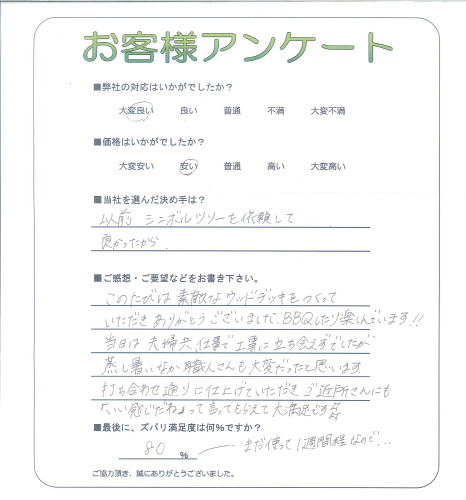 お客様アンケート
■弊社の対応はいかがでしたか？
大変良い 良い 普通 不満 大変不満
■価格はいかがでしたか？
大変安い 安い 普通 高い 大変高い
■当社を選んだ決め手は？
以前 シンボルツリーを依頼して
良かったから
■ご感想・ご要望などをお書き下さい。
このたびは 素敵なウッドデッキをつくって
いただき ありがとうございました。BBQしたり楽しんでいます!!
当日は 夫婦共、仕事で工事に立ち会えずでしたが
蒸し暑いなか職人さんも大変だったと思います
打ち合わせ通りに仕上げていただき ご近所さんにも
「いい感じだね」って言ってもらえて大満足です
■最後に、ズバリ満足度は何％ですか？
80 ％ まだ使って1週間程なので…
ご協力頂き、誠にありがとうございました。